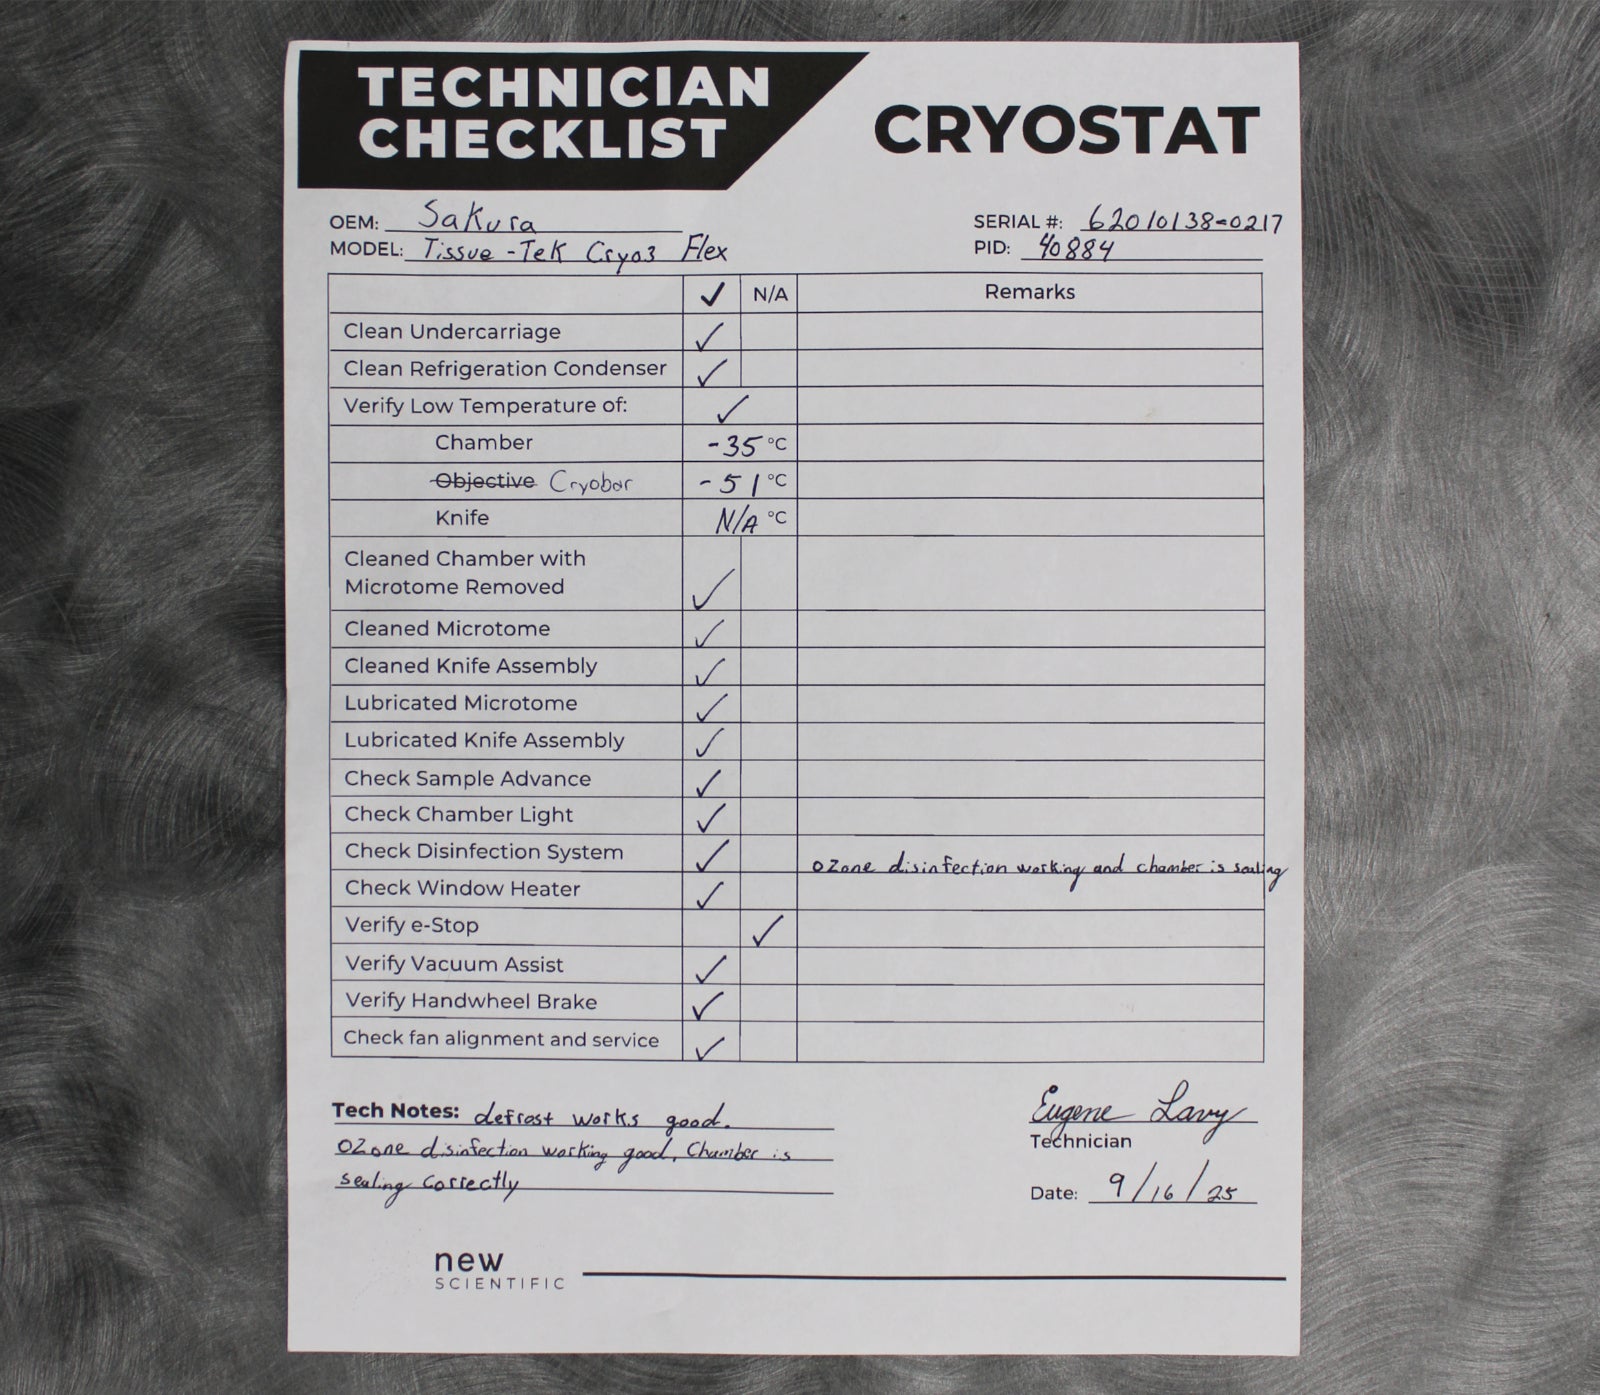 TECHNICIAN
CHECKLIST
CRYOSTAT
OEM: Sakura
SERIAL #: 62010138-0217
MODEL: Tissue-Tek Cryo3 Flex
PID: 40884
✓ N/A Remarks
Clean Undercarriage ✓
Clean Refrigeration Condenser ✓
Verify Low Temperature of: ✓
Chamber -35 °C
Objective Cryobar -51 °C
Knife N/A °C
Cleaned Chamber with
Microtome Removed ✓
Cleaned Microtome ✓
Cleaned Knife Assembly ✓
Lubricated Microtome ✓
Lubricated Knife Assembly ✓
Check Sample Advance ✓
Check Chamber Light ✓
Check Disinfection System ✓ Ozone disinfection working and chamber is sealing
Check Window Heater ✓
Verify e-Stop ✓
Verify Vacuum Assist ✓
Verify Handwheel Brake ✓
Check fan alignment and service ✓
Tech Notes: defrost works good.
Ozone disinfection working good, Chamber is
sealing correctly
Eugene Lavy
Technician
Date: 9/16/25
new
SCIENTIFIC